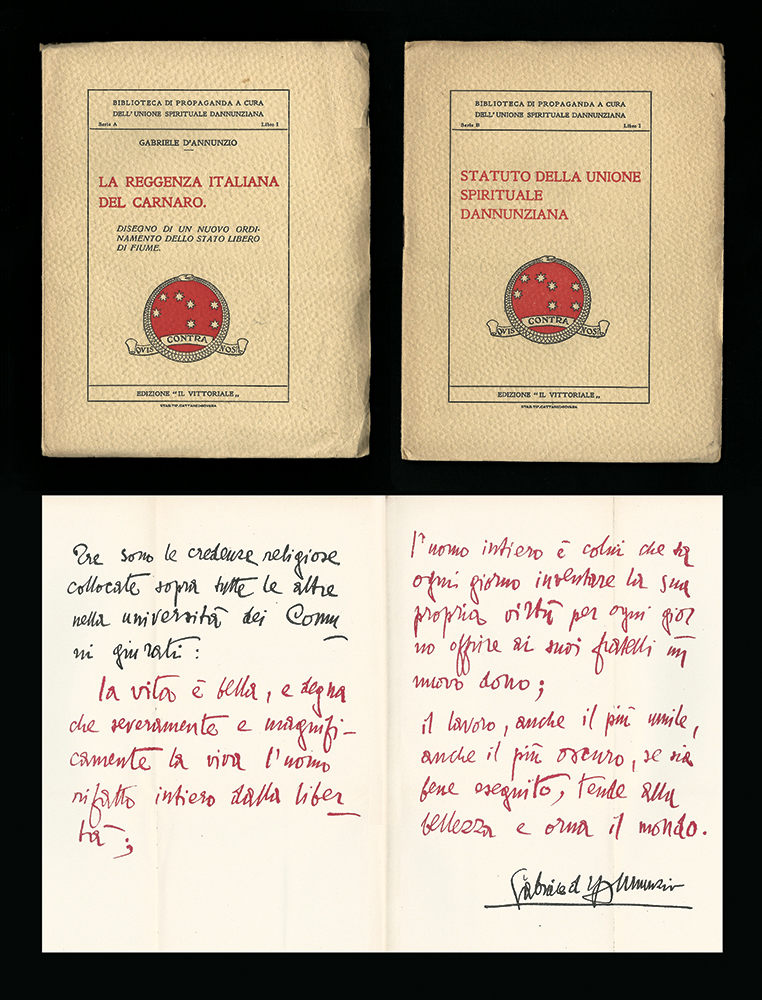 BIBLIOTECA DI PROPAGANDA A CURA
DELL'UNIONE SPIRITUALE DANNUNZIANA
Serie A Libro I
GABRIELE D'ANNUNZIO
LA REGGENZA ITALIANA
DEL CARNARO.
DISEGNO DI UN NUOVO ORDI-
NAMENTO DELLO STATO LIBERO
DI FIUME.
QVIS CONTRA NOS
EDIZIONE "IL VITTORIALE„
STAB. TIP. CATTANEO-NOVARA
BIBLIOTECA DI PROPAGANDA A CURA
DELL'UNIONE SPIRITUALE DANNUNZIANA
Serie B Libro I
STATUTO DELLA UNIONE
SPIRITUALE
DANNUNZIANA
QVIS CONTRA NOS
EDIZIONE "IL VITTORIALE„
STAB. TIP. CATTANEO-NOVARA
Tre sono le credenze religiose
collocate sopra tutte le altre
nella università dei Comu
ni giurati:
la vita è bella, e degna
che severamente e magnifi-
camente la viva l'uomo
rifatto intiero dalla liber
tà;
l'uomo intiero è colui che sa
ogni giorno inventare la sua
propria virtù per ogni gior
no offrire ai suoi fratelli un
nuovo dono;
il lavoro, anche il più umile,
anche il più oscuro, se sia
bene eseguito, tende alla
bellezza e orna il mondo.
Gabriele d'Annunzio